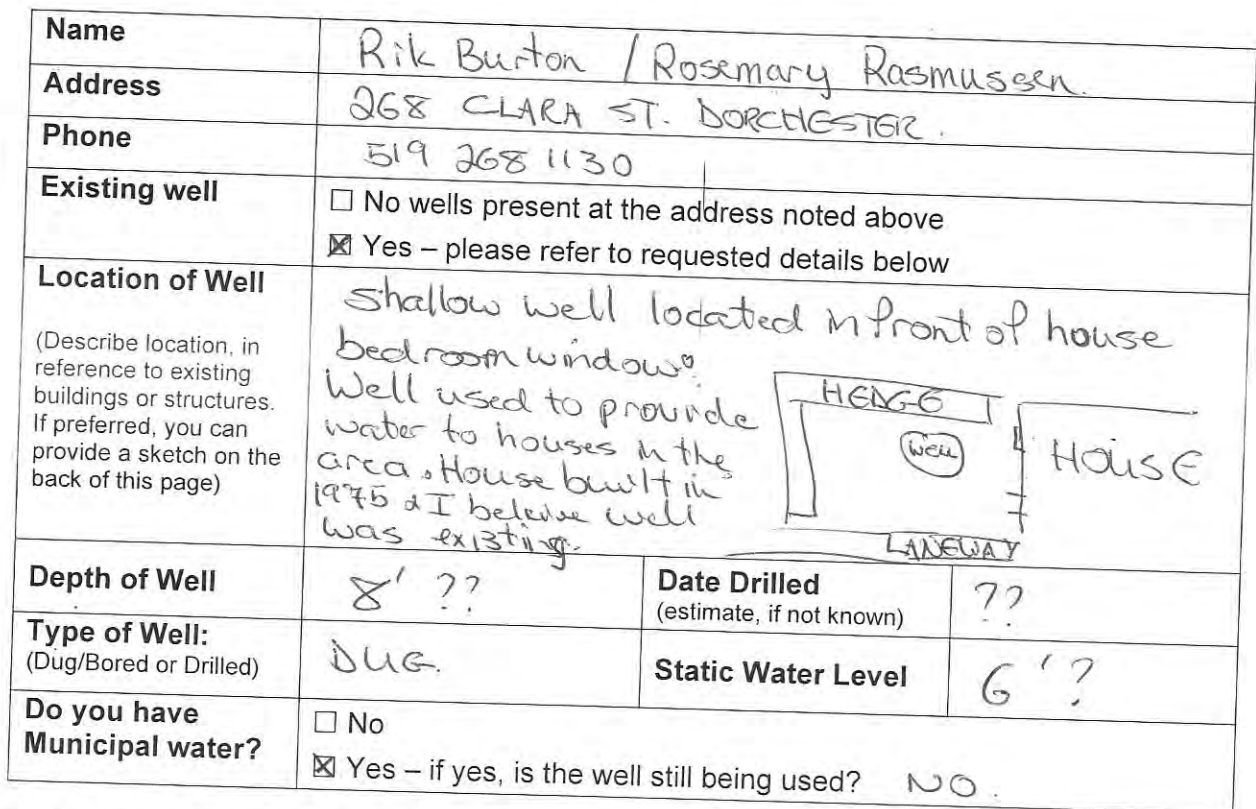 Name
Rik Burton / Rosemary Rasmussen.
Address
268 CLARA ST. DORCHESTER.
Phone
519 268 1130
Existing well
☐ No wells present at the address noted above
☒ Yes – please refer to requested details below
Location of Well
(Describe location, in
reference to existing
buildings or structures.
If preferred, you can
provide a sketch on the
back of this page)
Shallow well located in front of house
bedroom window.
Well used to provide
water to houses in the
area. House built in
1975 & I beleive well
was existing.
HEDGE
Well
HOUSE
LANEWAY
Depth of Well
8' ??
Date Drilled
(estimate, if not known)
??
Type of Well:
(Dug/Bored or Drilled)
DUG.
Static Water Level
6' ?
Do you have
Municipal water?
☐ No
☒ Yes – if yes, is the well still being used? NO.